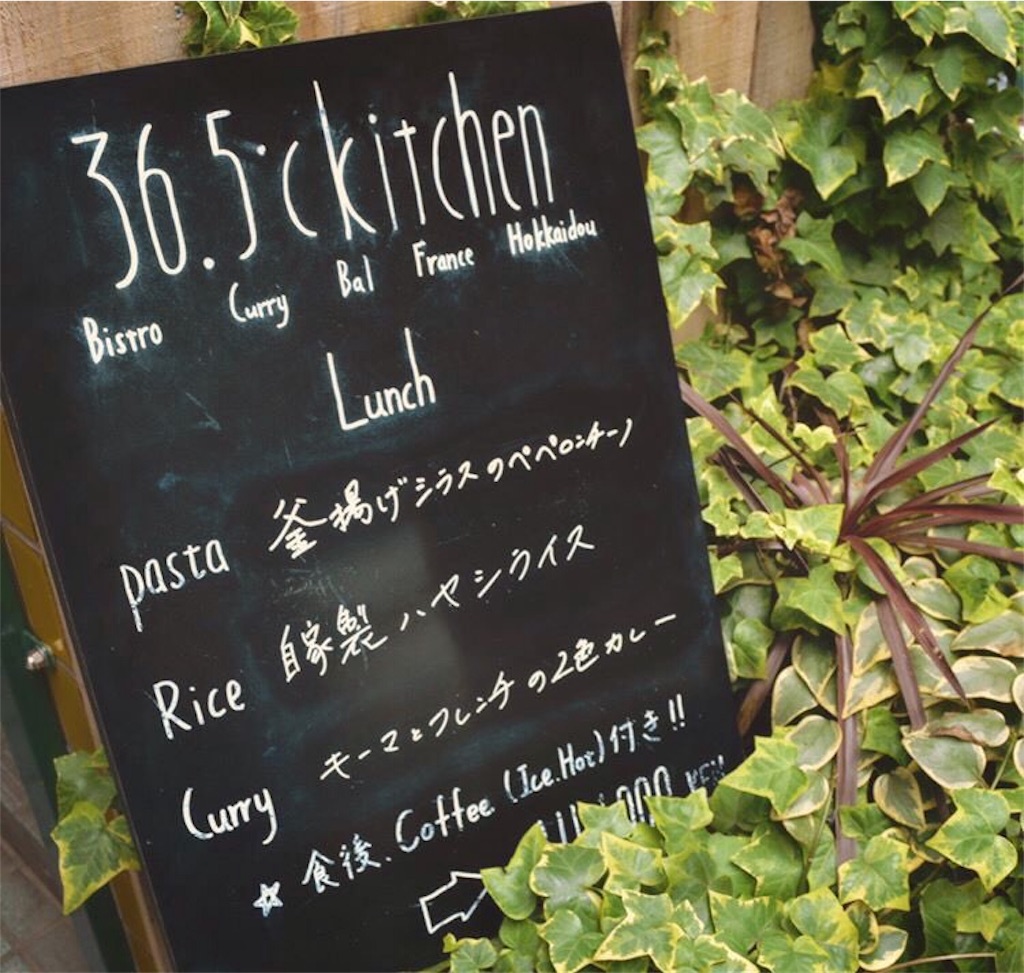 36.5°c kitchen
Bistro Curry Bal France Hokkaidou
Lunch
pasta 釜揚げシラスのペペロンチーノ
Rice 自家製ハヤシライス
Curry キーマとフレンチの2色カレー
☆ 食後、Coffee (Ice.Hot)付き!!